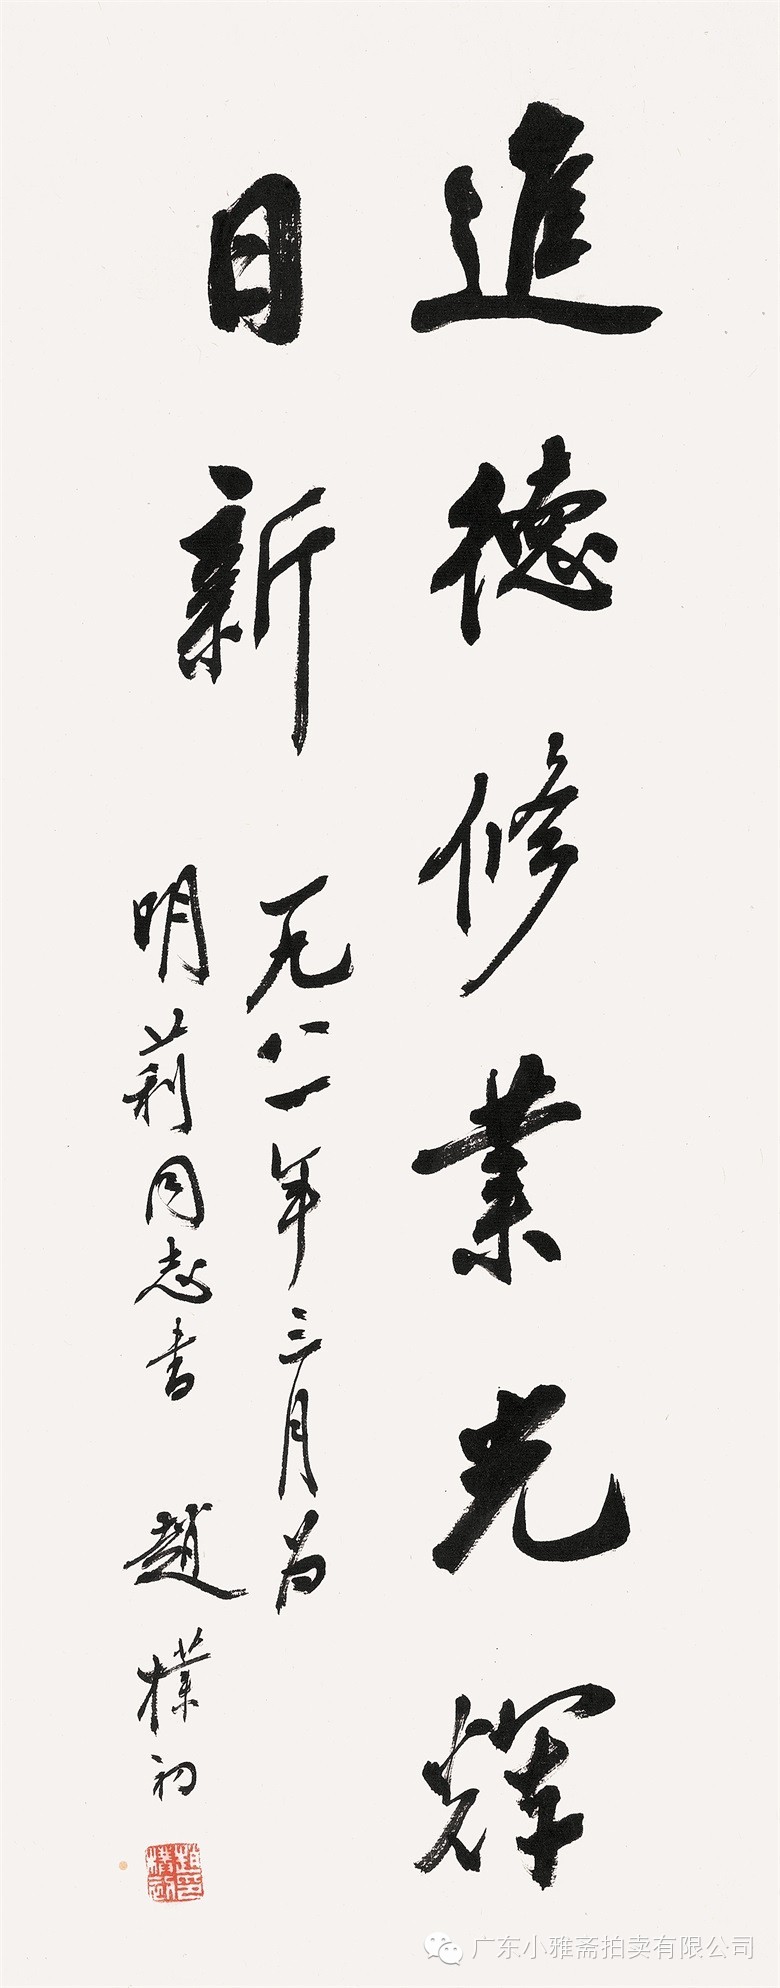 進德修業光輝
日新
一九八一年三月为
明莉同志書 趙樸初
趙樸初印
广东小雅斋拍卖有限公司